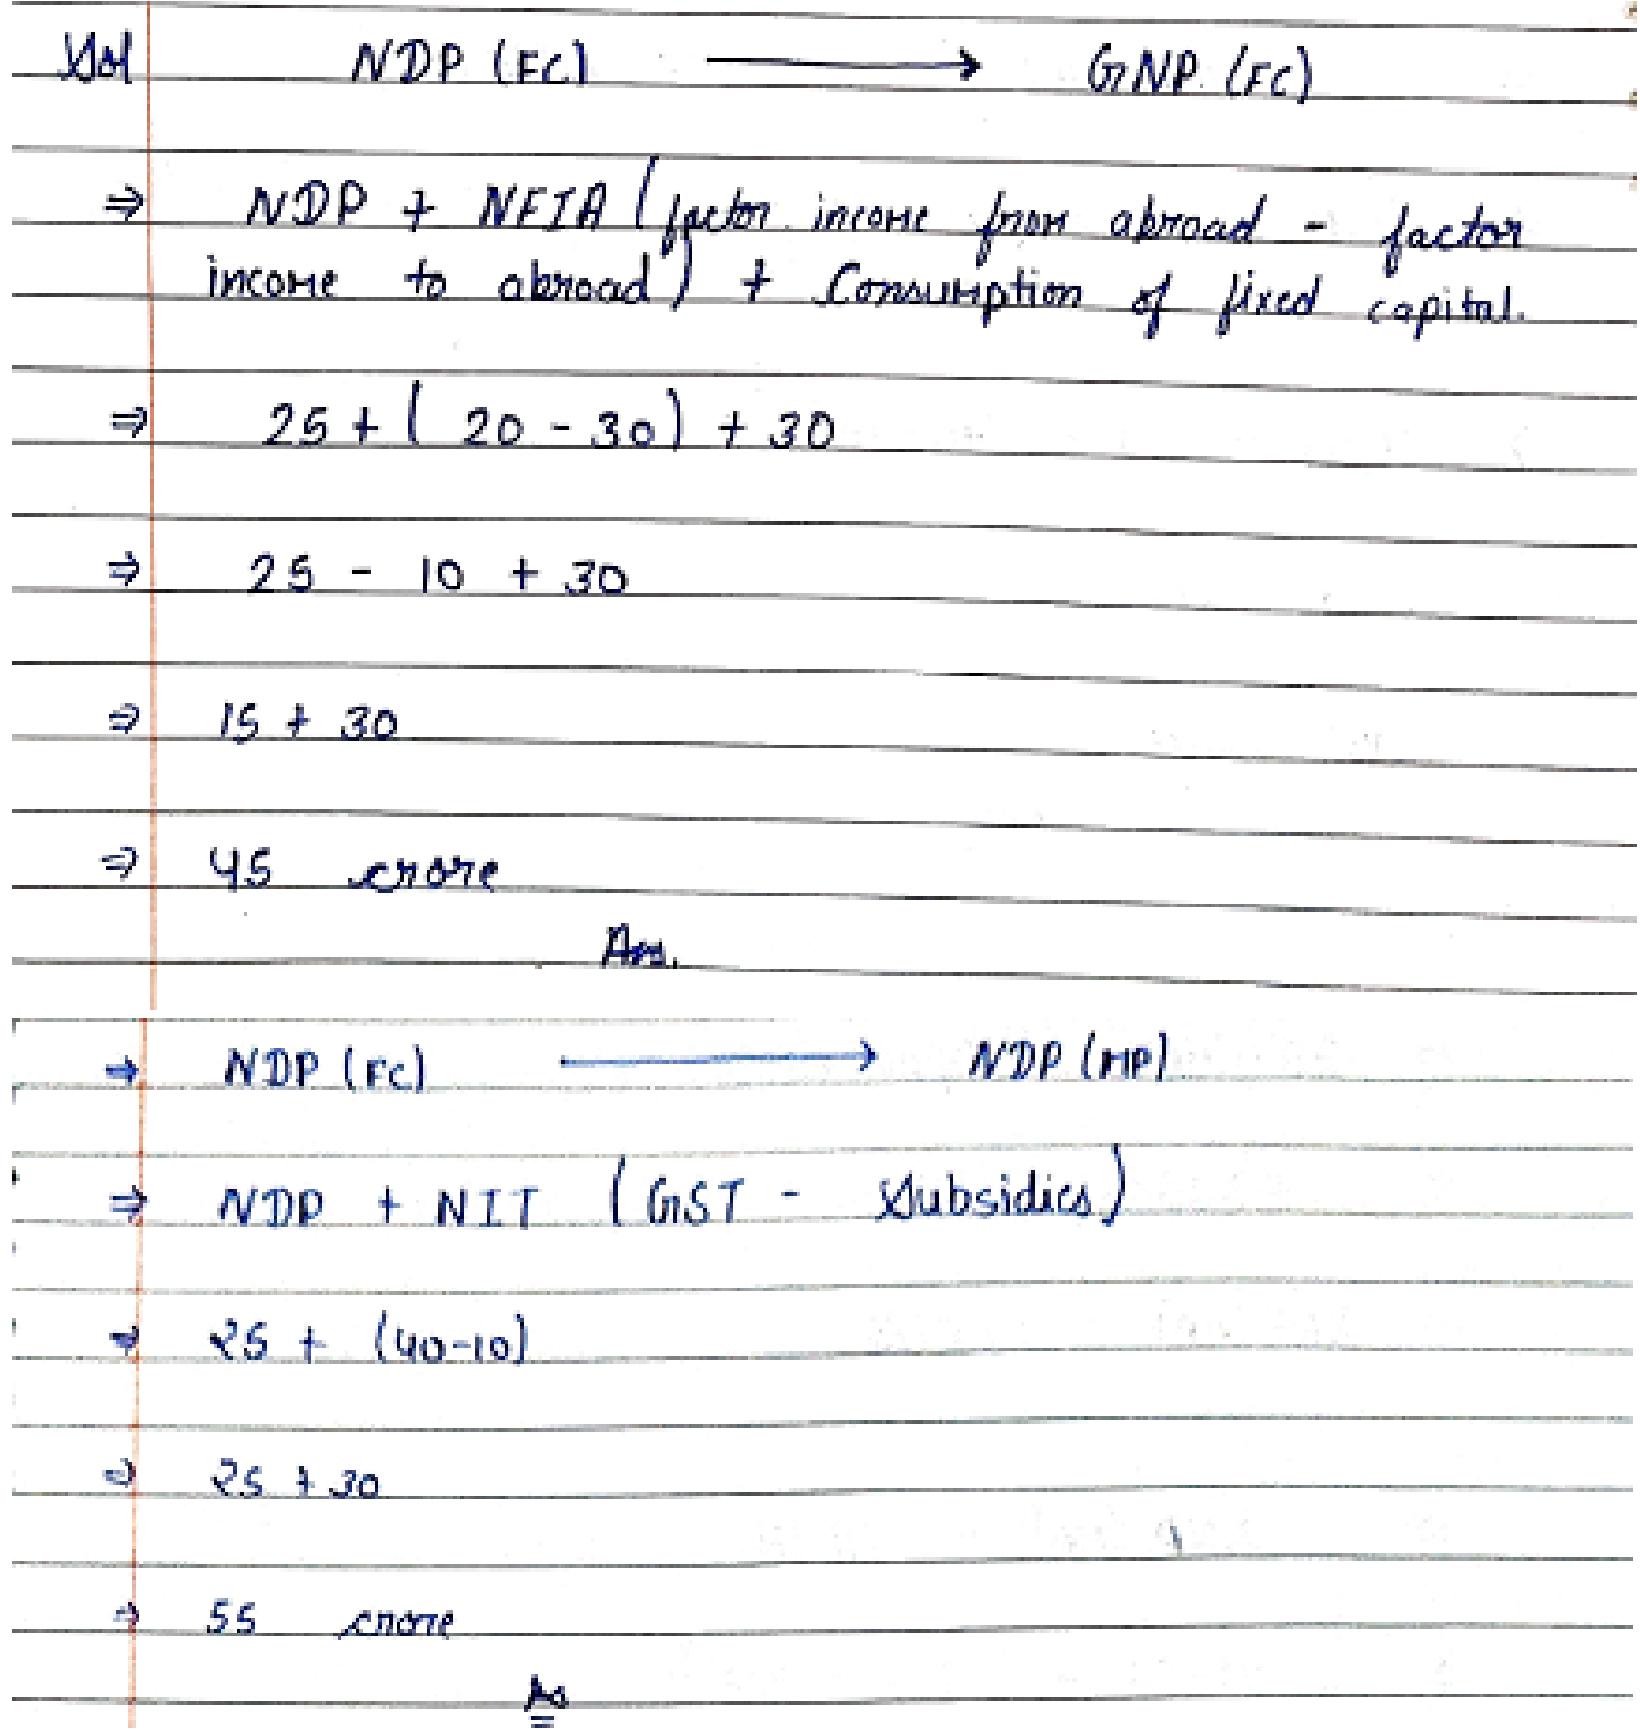 Sol NDP (FC) → GNP (FC)
⇒ NDP + NFIA (factor income from abroad - factor
income to abroad) + Consumption of fixed capital.
⇒ 25 + ( 20 - 30) + 30
⇒ 25 - 10 + 30
⇒ 15 + 30
⇒ 45 crore
Ans.
⇒ NDP (FC) → NDP (MP)
⇒ NDP + NIT (GST - Subsidies)
⇒ 25 + (40-10)
⇒ 25 + 30
⇒ 55 crore
As